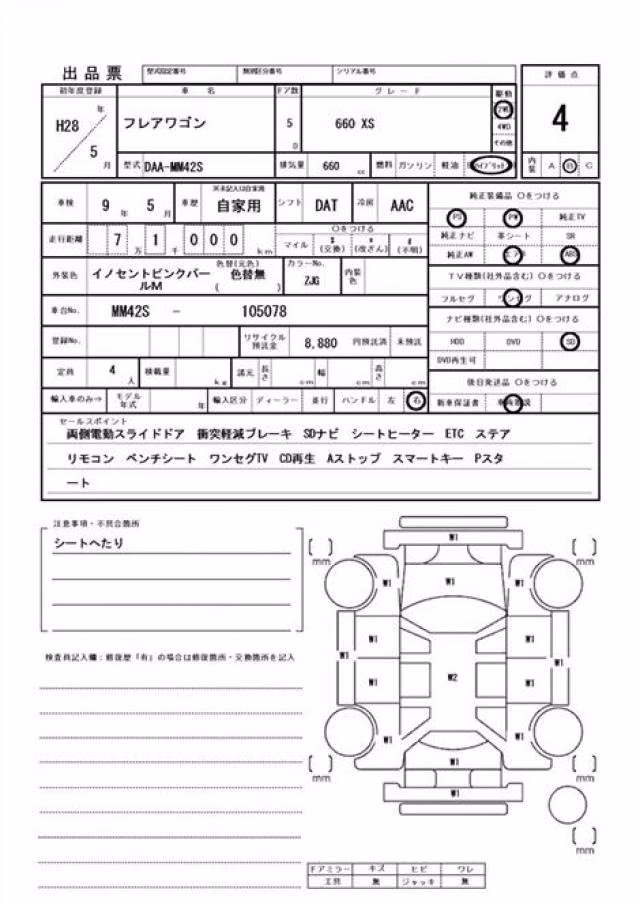 出品票 型式指定番号 類別区分番号 シリアル番号
初年度登録 車名 ドア数 グレード 駆動 評価点
H28 年 5 月 フレアワゴン 5 D 660 XS 2WD 4WD その他 4
型式 DAA-MM42S 排気量 660 cc 燃料 ガソリン 軽油 ハイブリッド 内装 A B C
車検 9 年 5 月 車歴 ※未記入は自家用 自家用 シフト DAT 冷房 AAC 純正装備品 ○をつける
PS PW 純正TV
走行距離 7 万 1 千 0 0 0 km ○をつける マイル $ (交換) * (改ざん) # (不明) 純正ナビ 革シート SR
純正AW エアB ABS
外装色 イノセントピンクパールM 色替(元色) 色替無 ( ) カラーNo. ZJG 内装色 TV種類(社外品含む) ○をつける
フルセグ ワンセグ アナログ
車台No. MM42S - 105078 ナビ種類(社外品含む) ○をつける
登録No. リサイクル預託金 8,880 円預託済 未預託 HDD DVD SD
DVD再生可
定員 4 人 積載量 kg 諸元 長さ cm 幅 cm 高さ cm 後日発送品 ○をつける
輸入車のみ⇒ モデル年式 年 輸入区分 ディーラー 並行 ハンドル 左 右 新車保証書 車両取説
セールスポイント
両側電動スライドドア 衝突軽減ブレーキ SDナビ シートヒーター ETC ステア
リモコン ベンチシート ワンセグTV CD再生 Aストップ スマートキー Pスタ
ート
注意事項・不具合箇所
シートへたり
検査員記入欄:修復歴「有」の場合は修復箇所・交換箇所を記入
W1
mm mm
W1 W1 W1
W1 W1
W1 W2 W1
W1 W1
W1 W1
W1
mm mm
W1
mm
ドアミラー キズ ヒビ ワレ
工具 無 ジャッキ 無